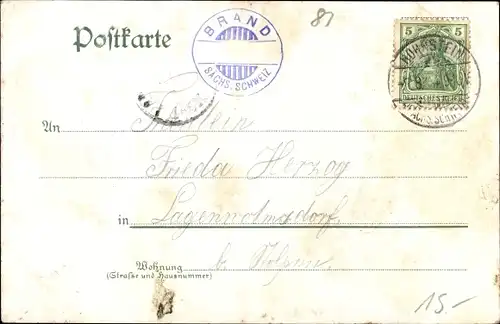 81
BRAND
SÄCHS. SCHWEIZ
Postkarte
5 5
DEUTSCHES REICH
HOHNSTEIN
An Fräulein
Frieda Herzog
in Langenwolmsdorf
b. Stolpen
Wohnung
(Straße und Hausnummer)
15.-